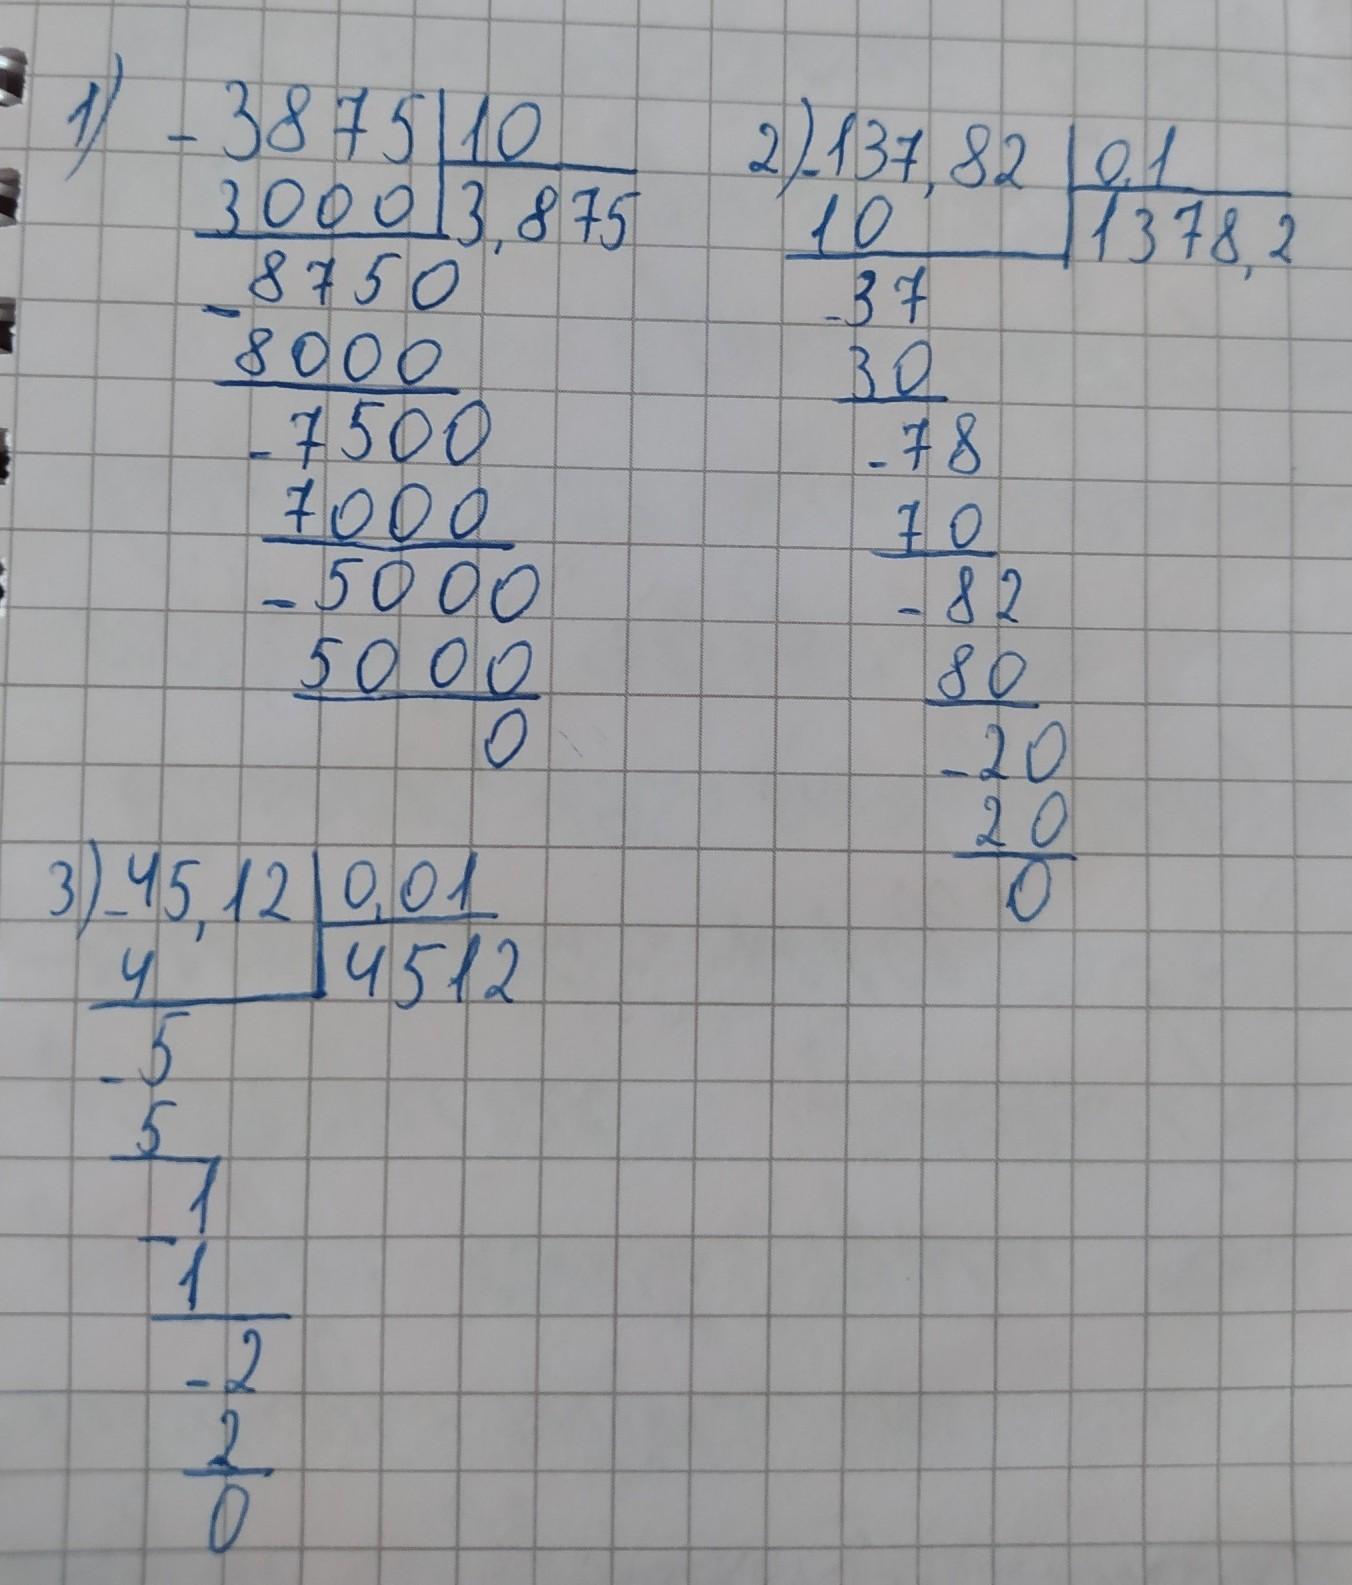 1) - 3875 | 10
3000 | 3,875
- 8750
8000
- 7500
7000
- 5000
5000
0
2) - 137,82 | 0,1
10 | 1378,2
- 37
30
- 78
70
- 82
80
- 20
20
0
3) - 45,12 | 0,01
4 | 4512
- 5
5
- 1
1
- 2
2
0